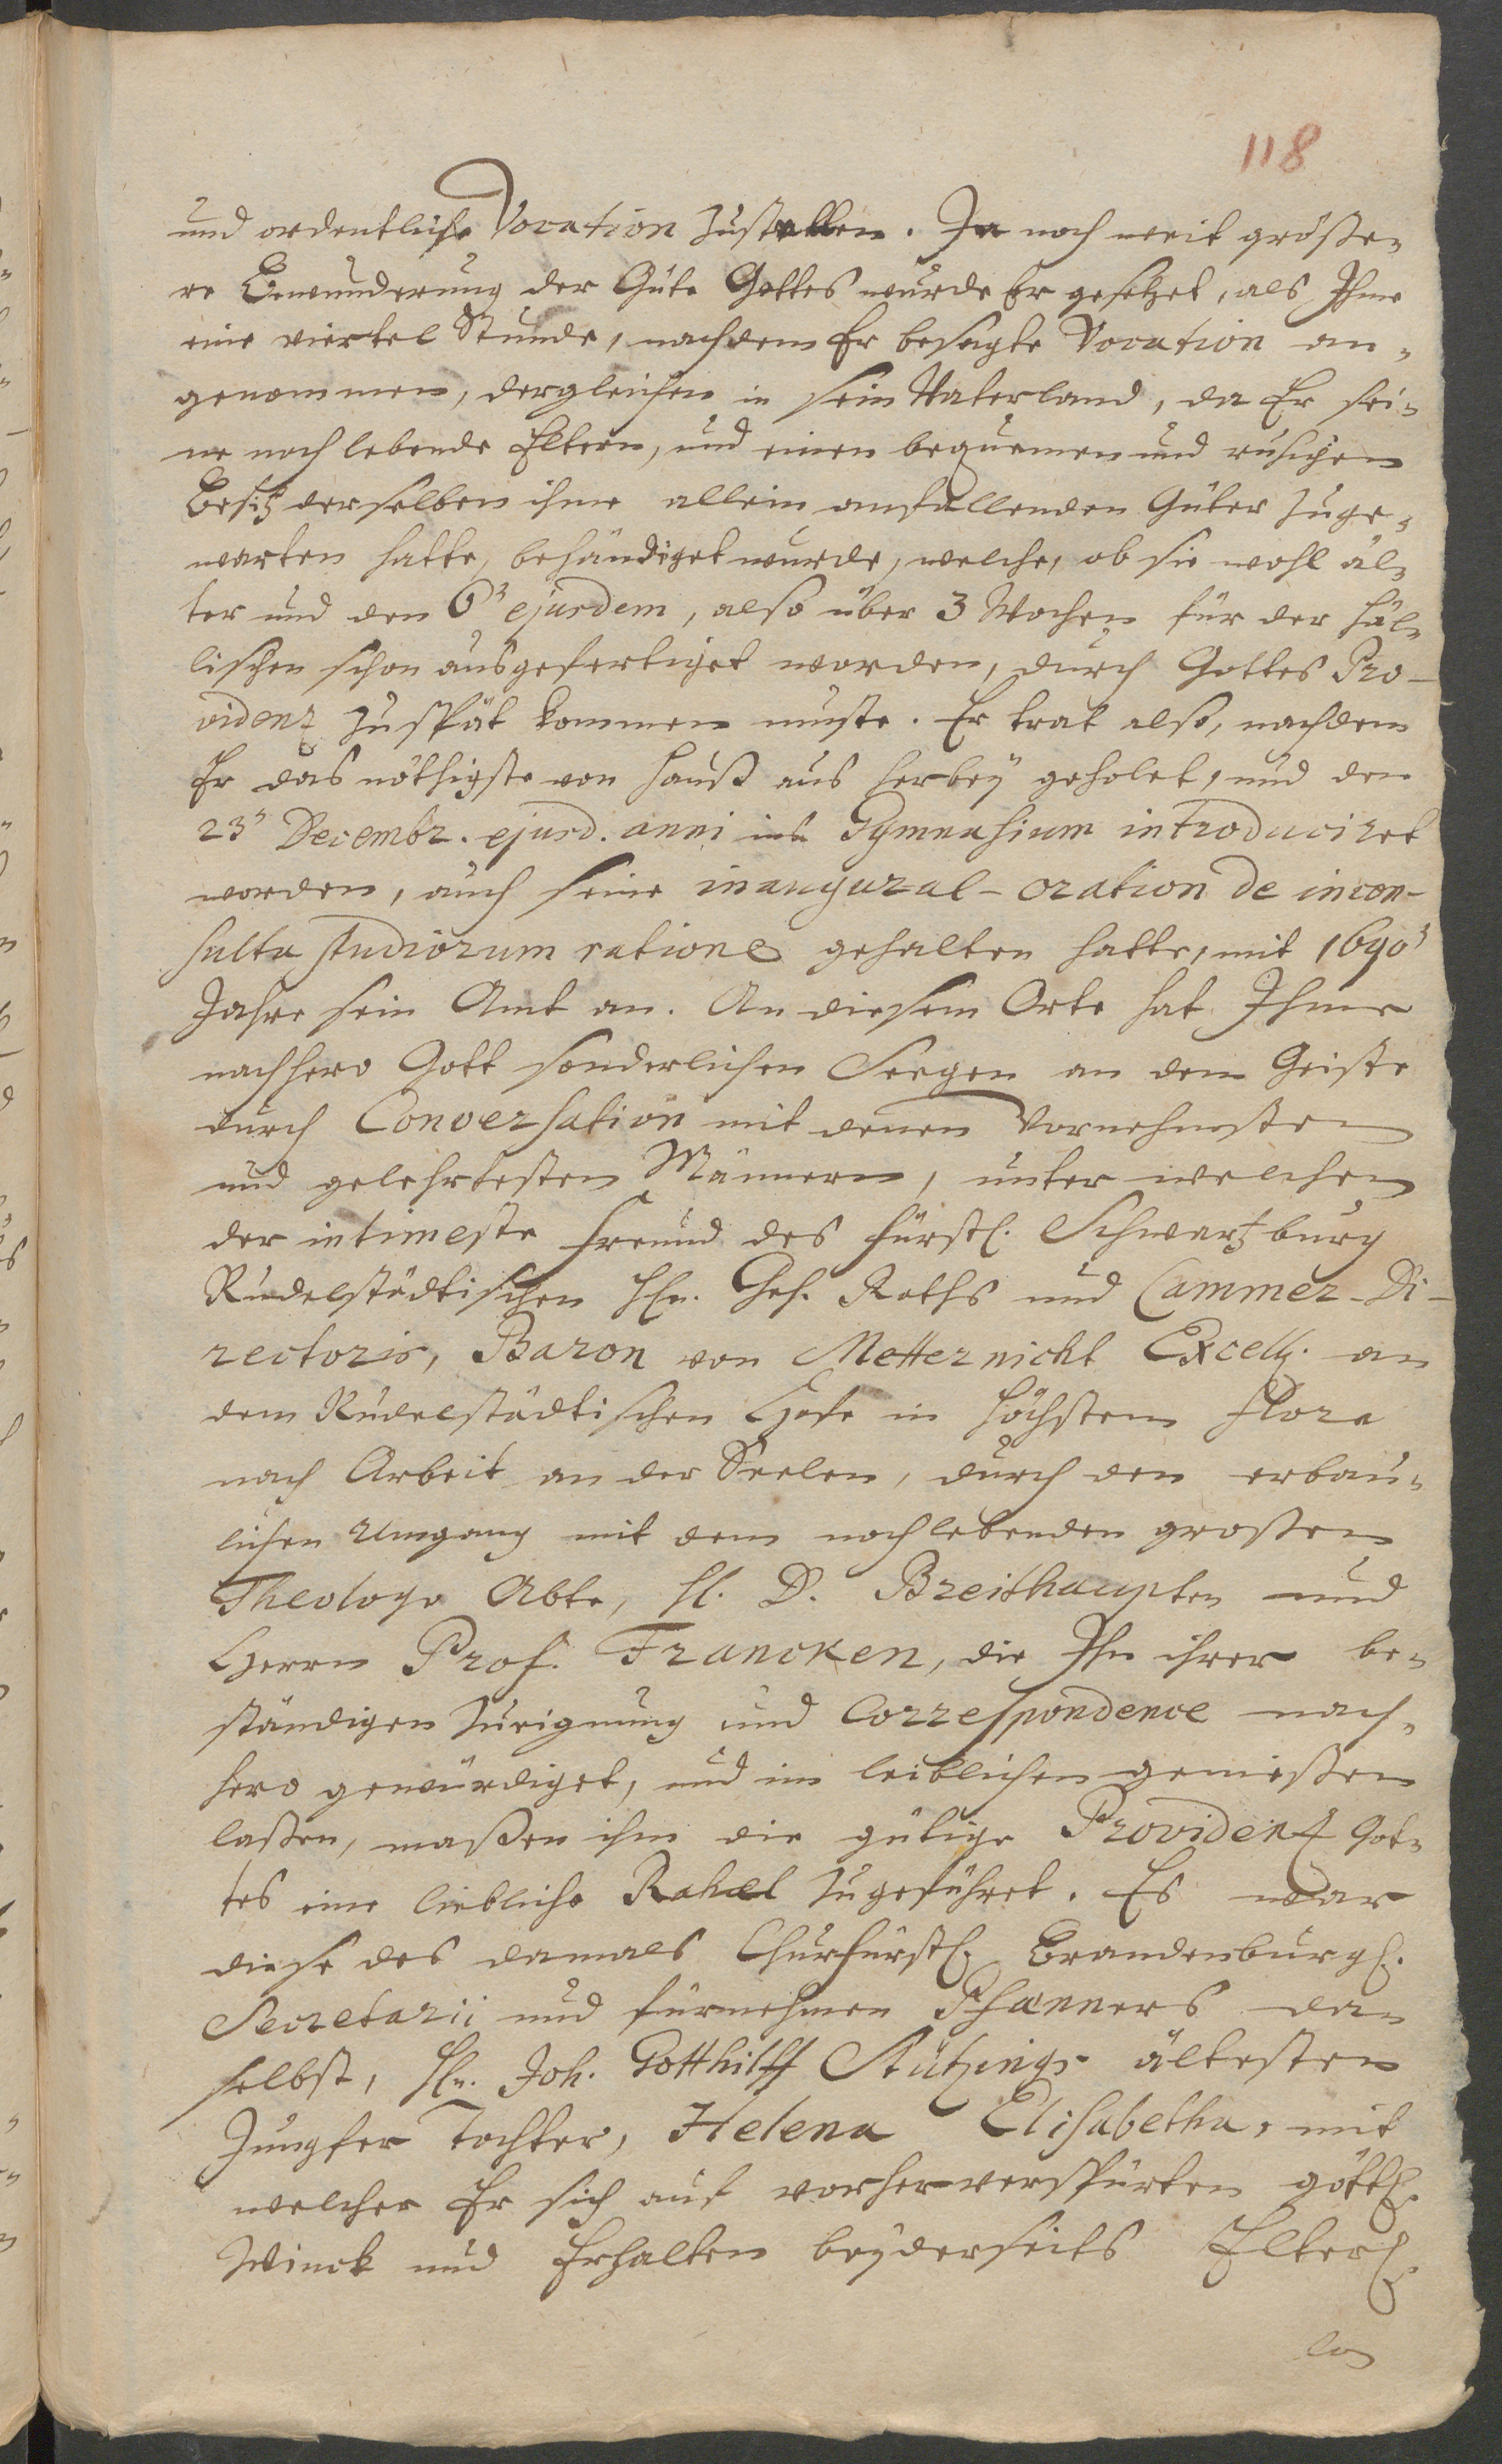 118
und ordentliche Vocation zustellen. In noch weit größe¬
re Bewunderung der Güte Gottes wurde Er gesetzet, als Ihme
eine viertel Stunde, nachdem Er besagte Vocation an¬
genommen, dergleichen in sein Vaterland, da Er sei¬
ne noch lebende Eltern, und einen bequemen und ruhigen
Besitz derselben ihme allein anfallenden Güter zuge¬
warten hatte, behändiget wurde, welche, ob sie wohl äl¬
ter und den 6ᵗ ejusdem, also über 3 Wochen für der Häl¬
lischen schon ausgefertiget worden, durch Gottes Pro-
videnz zu spät kommen muste. Er trat also, nachdem
Er das nöthigste von Hauß aus herbey geholet, und den
23ᵗ Decembr. ejusd. anni ins Gymnasium introduciret
worden, auch seine inaugural-oration de incon-
sulta studiorum ratione gehalten hatte, mit 1690ᵗ
Jahre sein Amt an. An diesem Orte hat Ihme
nachhero Gott sonderlichen Seegen an dem Geiste
durch Conversation mit denen Vornehmsten
und gelehrtesten Männern, unter welchen
der intimeste Freund des Fürstl. Schwartzburg
Rudelstädtischen Hn. Geh. Raths und Cammer-Di-
rectoris, Baron von Metternicht Excell. an
dem Rudelstädtischen Hofe in höchstem Flore
nach Arbeit an der Seelen, durch den erbau¬
lichen Umgang mit dem noch lebenden grossen
Theologo Abte, H. D. Breithaupten und
Herrn Prof. Francken, die Ihn ihrer be¬
ständigen Zueignung und Correspondence nach¬
hero gewürdiget, und im leiblichen geniessen
lassen, massen ihm die gütige Providentz Got¬
tes eine liebliche Rahel zugeführet. Es war
diese des damals Churfürstl. Brandenburgl.
Secretarii und fürnehmen Pfänners da¬
selbst, Hn. Joh. Gotthilff Stützings ältesten
Jungfer Tochter, Helena Elisabetha, mit
welcher Er sich auf vorher verspürten göttl.
Winck und Erhalten beyderseits Elterl.